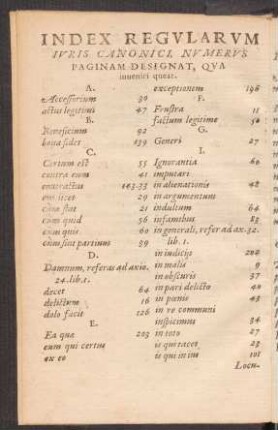 INDEX REGVLARVM
IVRIS CANONICI, NVMERVS
PAGINAM DESIGNAT, QVA
inueniri queat.
A.
Accessorium 92
actus legitimi 47
B.
Beneficium 92
bona fides 139
C.
Certum est 55
contra eum 41
contractus 143.33
21
cum quid 56
cum quis 60
cum sint partium 59
D.
Damnum, referas ad axio.
24.lib.1.
decet 64
delictum 16
dolo facit 126
E.
Ea quæ 203
eum qui certus
ex eo
exceptionem 196
F.
Frustra 11
factum legitime
G.
Generi 27
I.
Ignorantia 60
imputari
in alienatione 42
in argumentum
indultum 64
infamibus
in generali, refer ad ax.32.
lib.1.
in iudicijs 202
in malis 9
in obscuris 37
in pari delicto 40
in pœnis 45
in re communi
inspicimus 34
in toto 27
is qui tacet 23
is qui in ius 101
Locu-